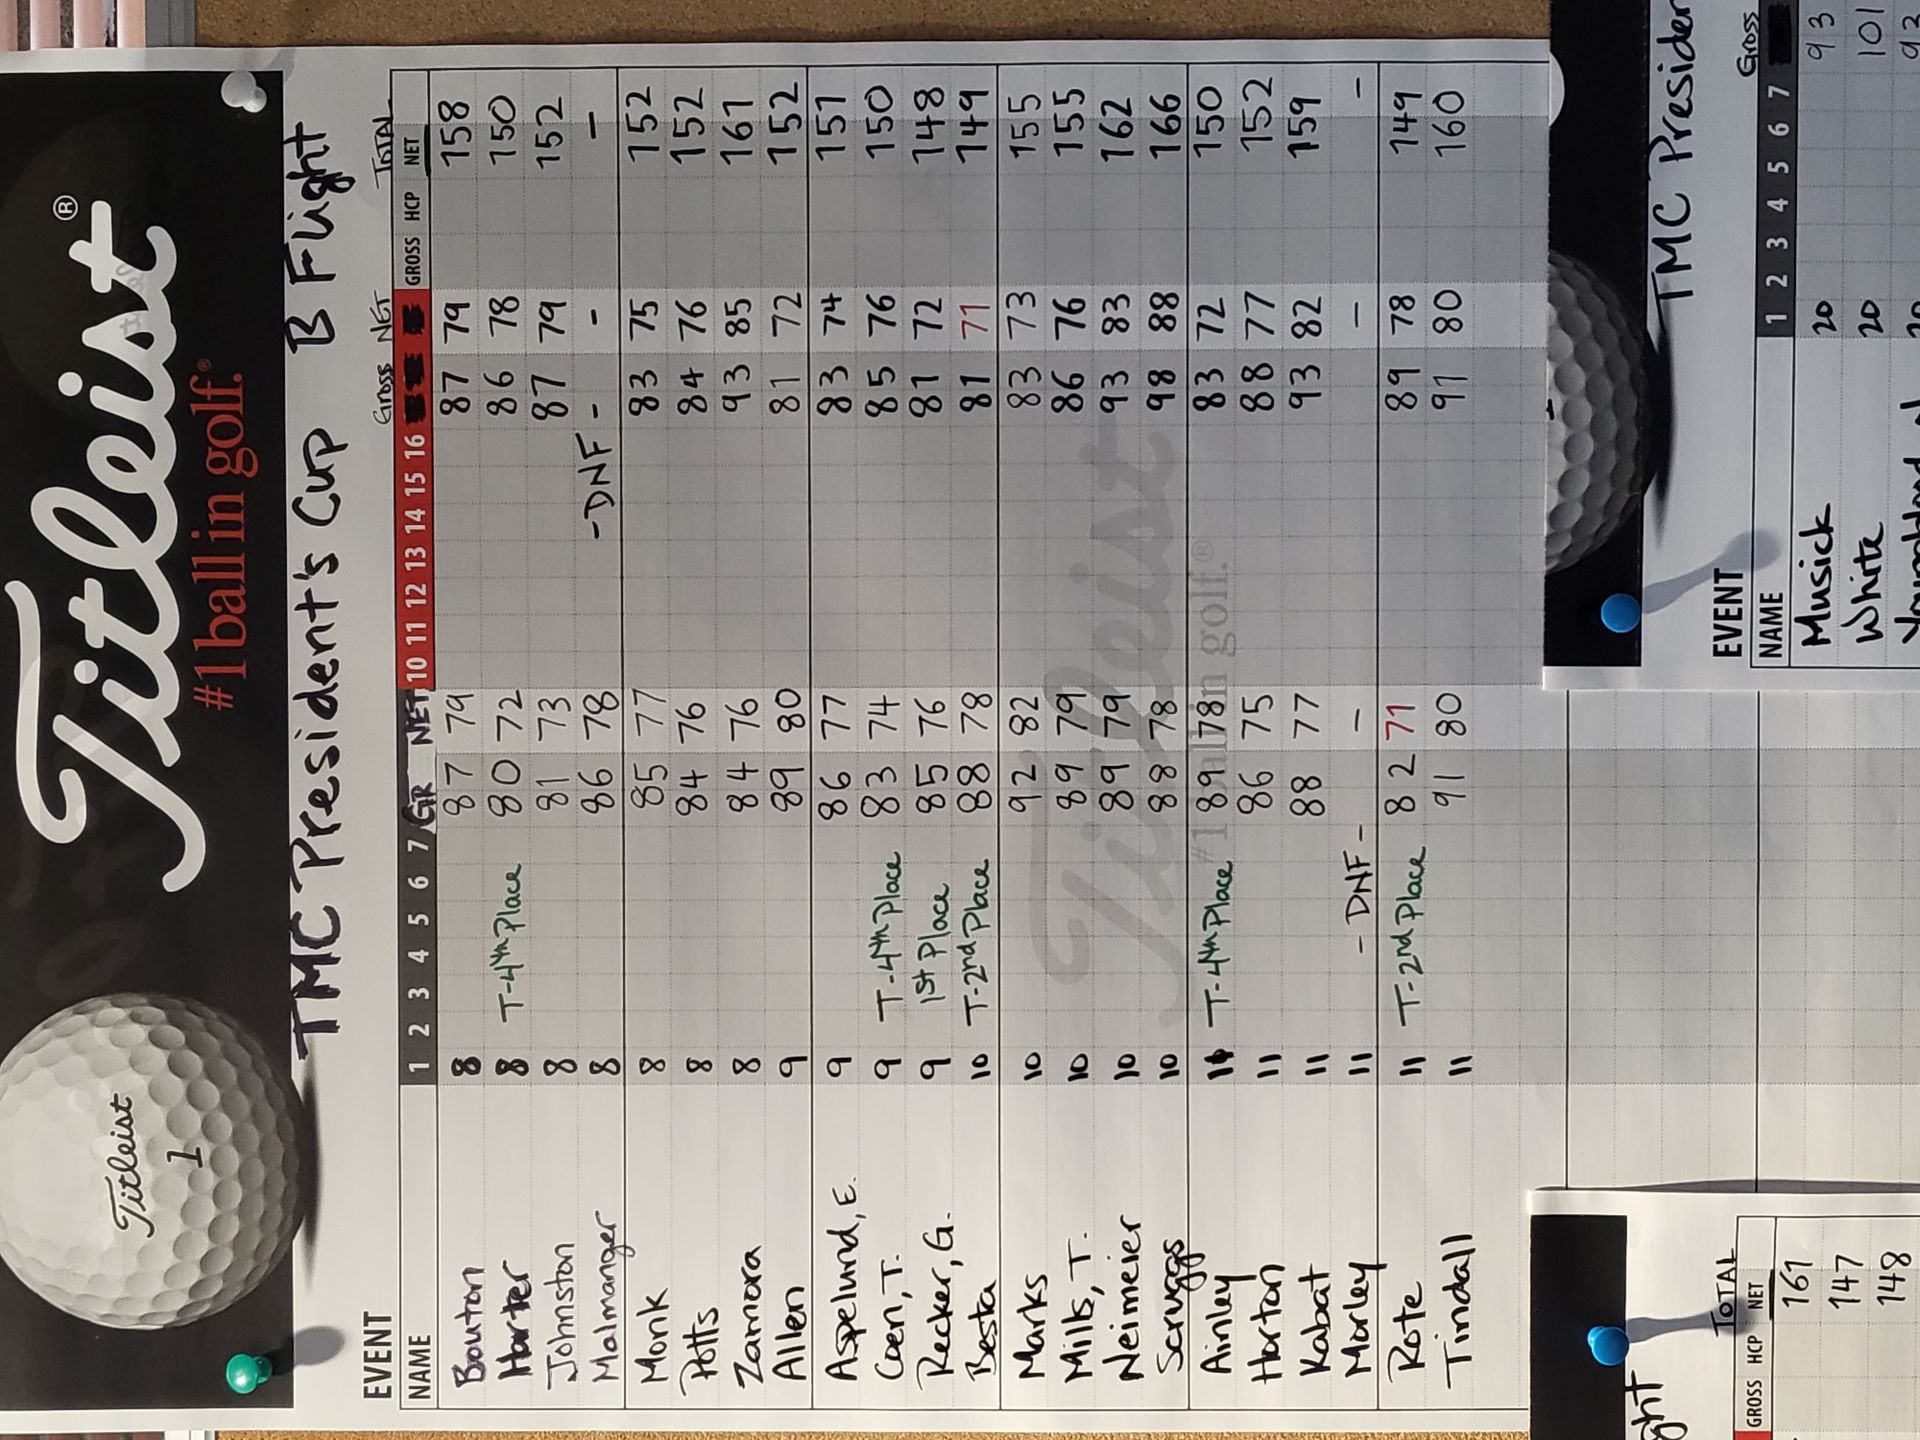 Titleist®
#1 ball in golf.®
Titleist
1
TMC President's Cup B Flight
EVENT Gross NET TOTAL
NAME 1 2 3 4 5 6 7 GR NET 10 11 12 13 14 15 16 GROSS HCP NET
Bouton 8 87 79 87 79 158
Harter 8 T-4th Place 80 72 86 78 150
Johnston 8 81 73 87 79 152
Malmanger 8 86 78 -DNF- - - -
Monk 8 85 77 83 75 152
Potts 8 84 76 84 76 152
Zamora 8 84 76 93 85 161
Allen 9 89 80 81 72 152
Aspelund, E. 9 86 77 83 74 151
Coen, T. 9 T-4th Place 83 74 85 76 150
Recker, G. 9 1st Place 85 76 81 72 148
Besta 10 T-2nd Place 88 78 81 71 149
Marks 10 92 82 83 73 155
Mills, T. 10 89 79 86 76 155
Neimeier 10 89 79 93 83 162
Scruggs 10 88 78 98 88 166
Ainley 11 T-4th Place 89 78 83 72 150
Horton 11 86 75 88 77 152
Kabat 11 88 77 93 82 159
Morley 11 -DNF- - - -
Rote 11 T-2nd Place 82 71 89 78 149
Tindall 11 91 80 91 80 160
Titleist
#1 ball in golf.®
TMC Presiden
EVENT Gross
NAME 1 2 3 4 5 6 7
Musick 20 93
White 20 101
20 93
ght
TOTAL
GROSS HCP NET
161
147
148